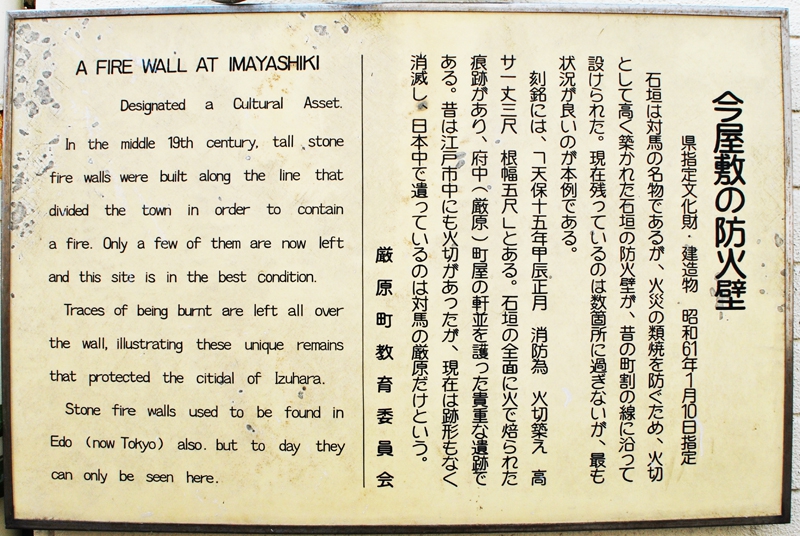 A FIRE WALL AT IMAYASHIKI
Designated a Cultural Asset.
In the middle 19th century, tall stone
fire walls were built along the line that
divided the town in order to contain
a fire. Only a few of them are now left
and this site is in the best condition.
Traces of being burnt are left all over
the wall, illustrating these unique remains
that protected the citidal of Izuhara.
Stone fire walls used to be found in
Edo (now Tokyo) also. but to day they
can only be seen here.
今屋敷の防火壁
県指定文化財・建造物 昭和61年1月10日指定
石垣は対馬の名物であるが、火災の類焼を防ぐため、火切
として高く築かれた石垣の防火壁が、昔の町割の線に沿って
設けられた。現在残っているのは数箇所に過ぎないが、最も
状況が良いのが本例である。
刻銘には、「天保十五年甲辰正月 消防為 火切築え 高
サ一丈三尺 根幅五尺」とある。石垣の全面に火で焙られた
痕跡があり、府中(厳原)町屋の軒並を護った貴重な遺跡で
ある。昔は江戸市中にも火切があったが、現在は跡形もなく
消滅し、日本中で遺っているのは対馬の厳原だけという。
厳原町教育委員会